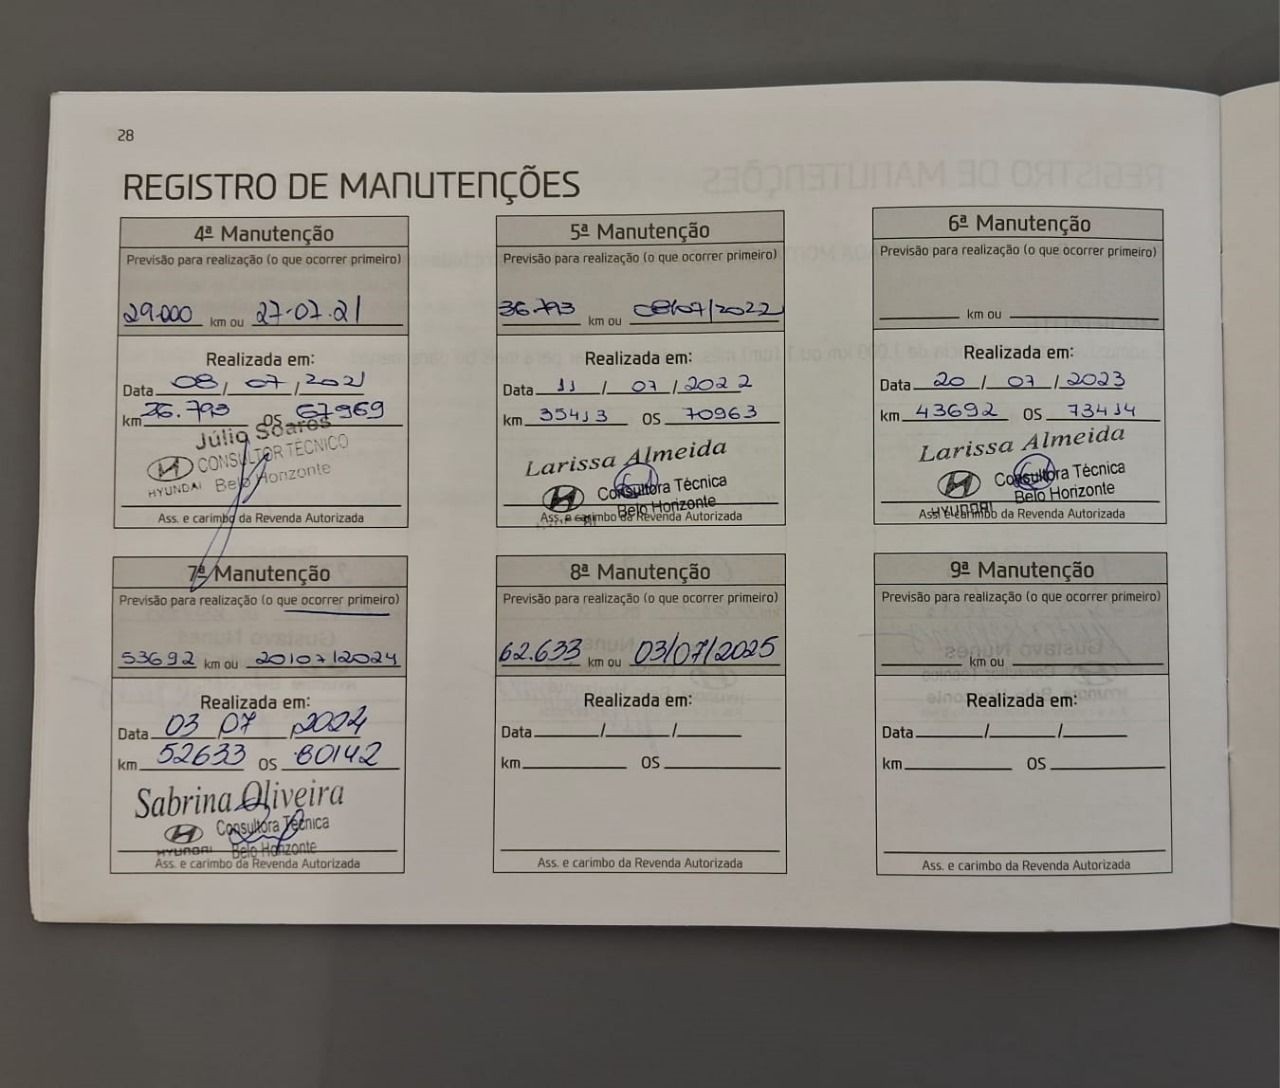 28
REGISTRO DE MANUTENÇÕES
4ª Manutenção
Previsão para realização (o que ocorrer primeiro)
29.000 km ou 27-07-21
Realizada em:
Data 08/07/2021
km 26.793 OS 67969
Júlio Soares
CONSULTOR TÉCNICO
HYUNDAI Belo Horizonte
Ass. e carimbo da Revenda Autorizada
5ª Manutenção
Previsão para realização (o que ocorrer primeiro)
36.793 km ou 08/07/2022
Realizada em:
Data 11/07/2022
km 35413 OS 70963
Larissa Almeida
Consultora Técnica
Belo Horizonte
Ass. e carimbo da Revenda Autorizada
6ª Manutenção
Previsão para realização (o que ocorrer primeiro)
km ou
Realizada em:
Data 20/07/2023
km 43692 OS 73414
Larissa Almeida
Consultora Técnica
HYUNDAI Belo Horizonte
Ass. e carimbo da Revenda Autorizada
7ª Manutenção
Previsão para realização (o que ocorrer primeiro)
53692 km ou 20/07/2024
Realizada em:
Data 03 07 2024
km 52633 OS 80142
Sabrina Oliveira
Consultora Técnica
HYUNDAI Belo Horizonte
Ass. e carimbo da Revenda Autorizada
8ª Manutenção
Previsão para realização (o que ocorrer primeiro)
62.633 km ou 03/07/2025
Realizada em:
Data / /
km OS
Ass. e carimbo da Revenda Autorizada
9ª Manutenção
Previsão para realização (o que ocorrer primeiro)
km ou
Realizada em:
Data / /
km OS
Ass. e carimbo da Revenda Autorizada